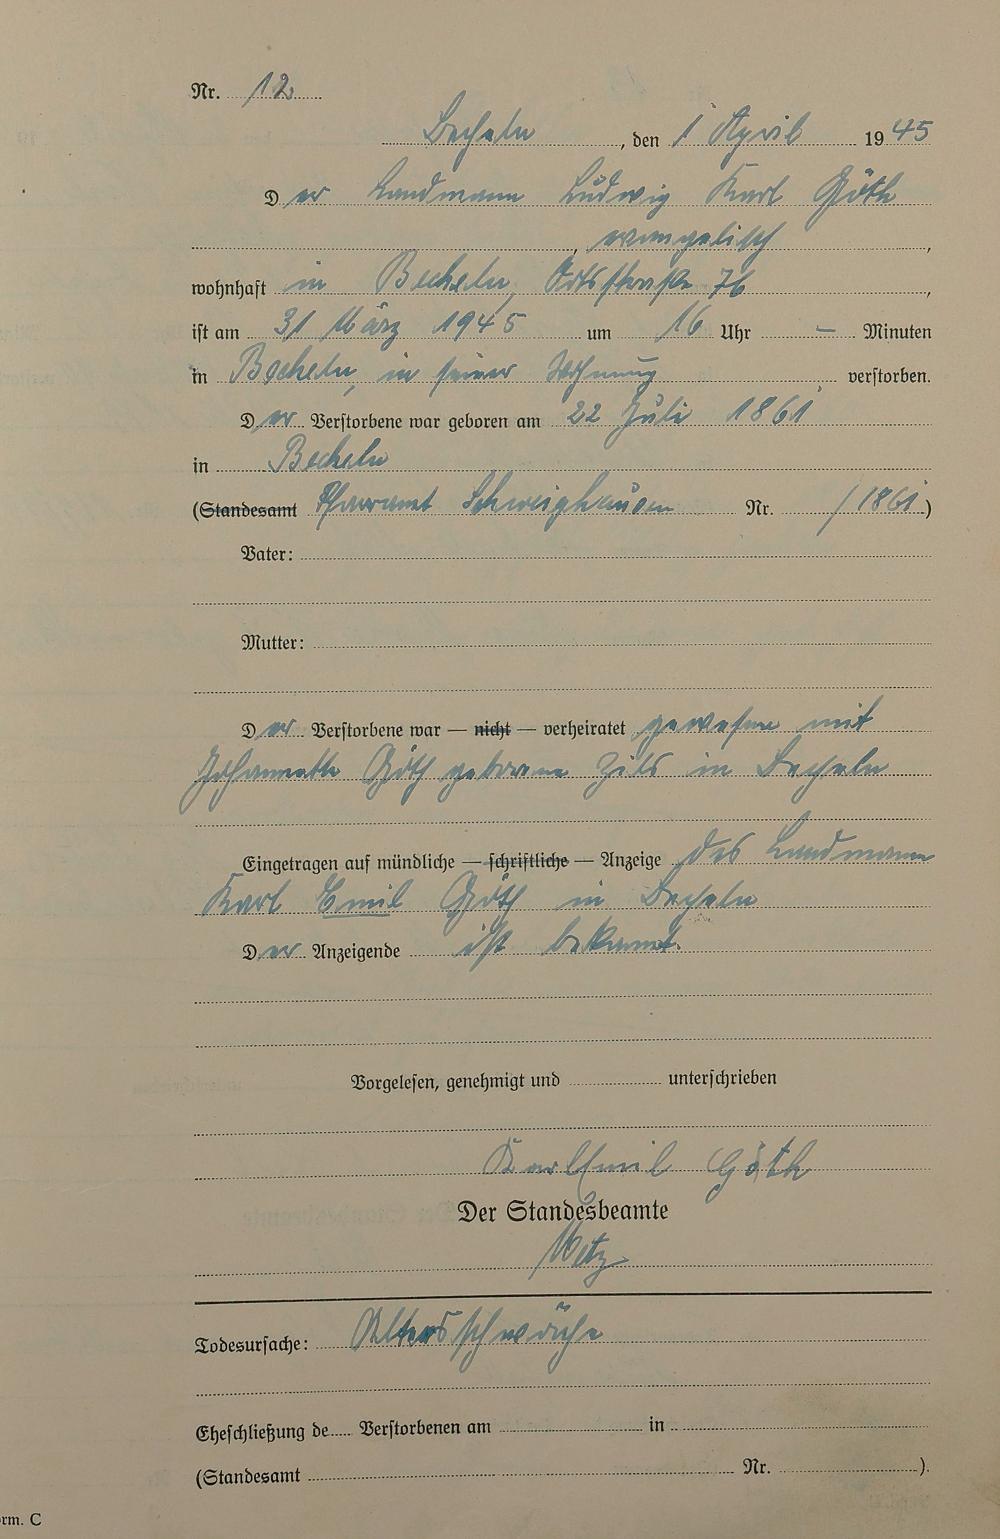 Nr. 12
Becheln, den 1 April 1945
Der Landmann Ludwig Karl Göth
, evangelisch,
wohnhaft in Becheln, Ortsstraße 76,
ist am 31 März 1945 um 16 Uhr – Minuten
in Becheln, in seiner Wohnung verstorben.
Der Verstorbene war geboren am 22 Juli 1861
in Becheln
(Standesamt Pfarramt Schweighausen Nr. / 1861)
Vater:
Mutter:
Der Verstorbene war — nicht — verheiratet gewesen mit
Johannette Göth geborene Zils in Becheln
Eingetragen auf mündliche — schriftliche — Anzeige des Landmann
Karl Emil Göth in Becheln
Der Anzeigende ist bekannt.
Vorgelesen, genehmigt und unterschrieben
Karl Emil Göth
Der Standesbeamte
Metz
Todesursache: Altersschwäche
Eheschließung de Verstorbenen am in
(Standesamt Nr. ).
orm. C